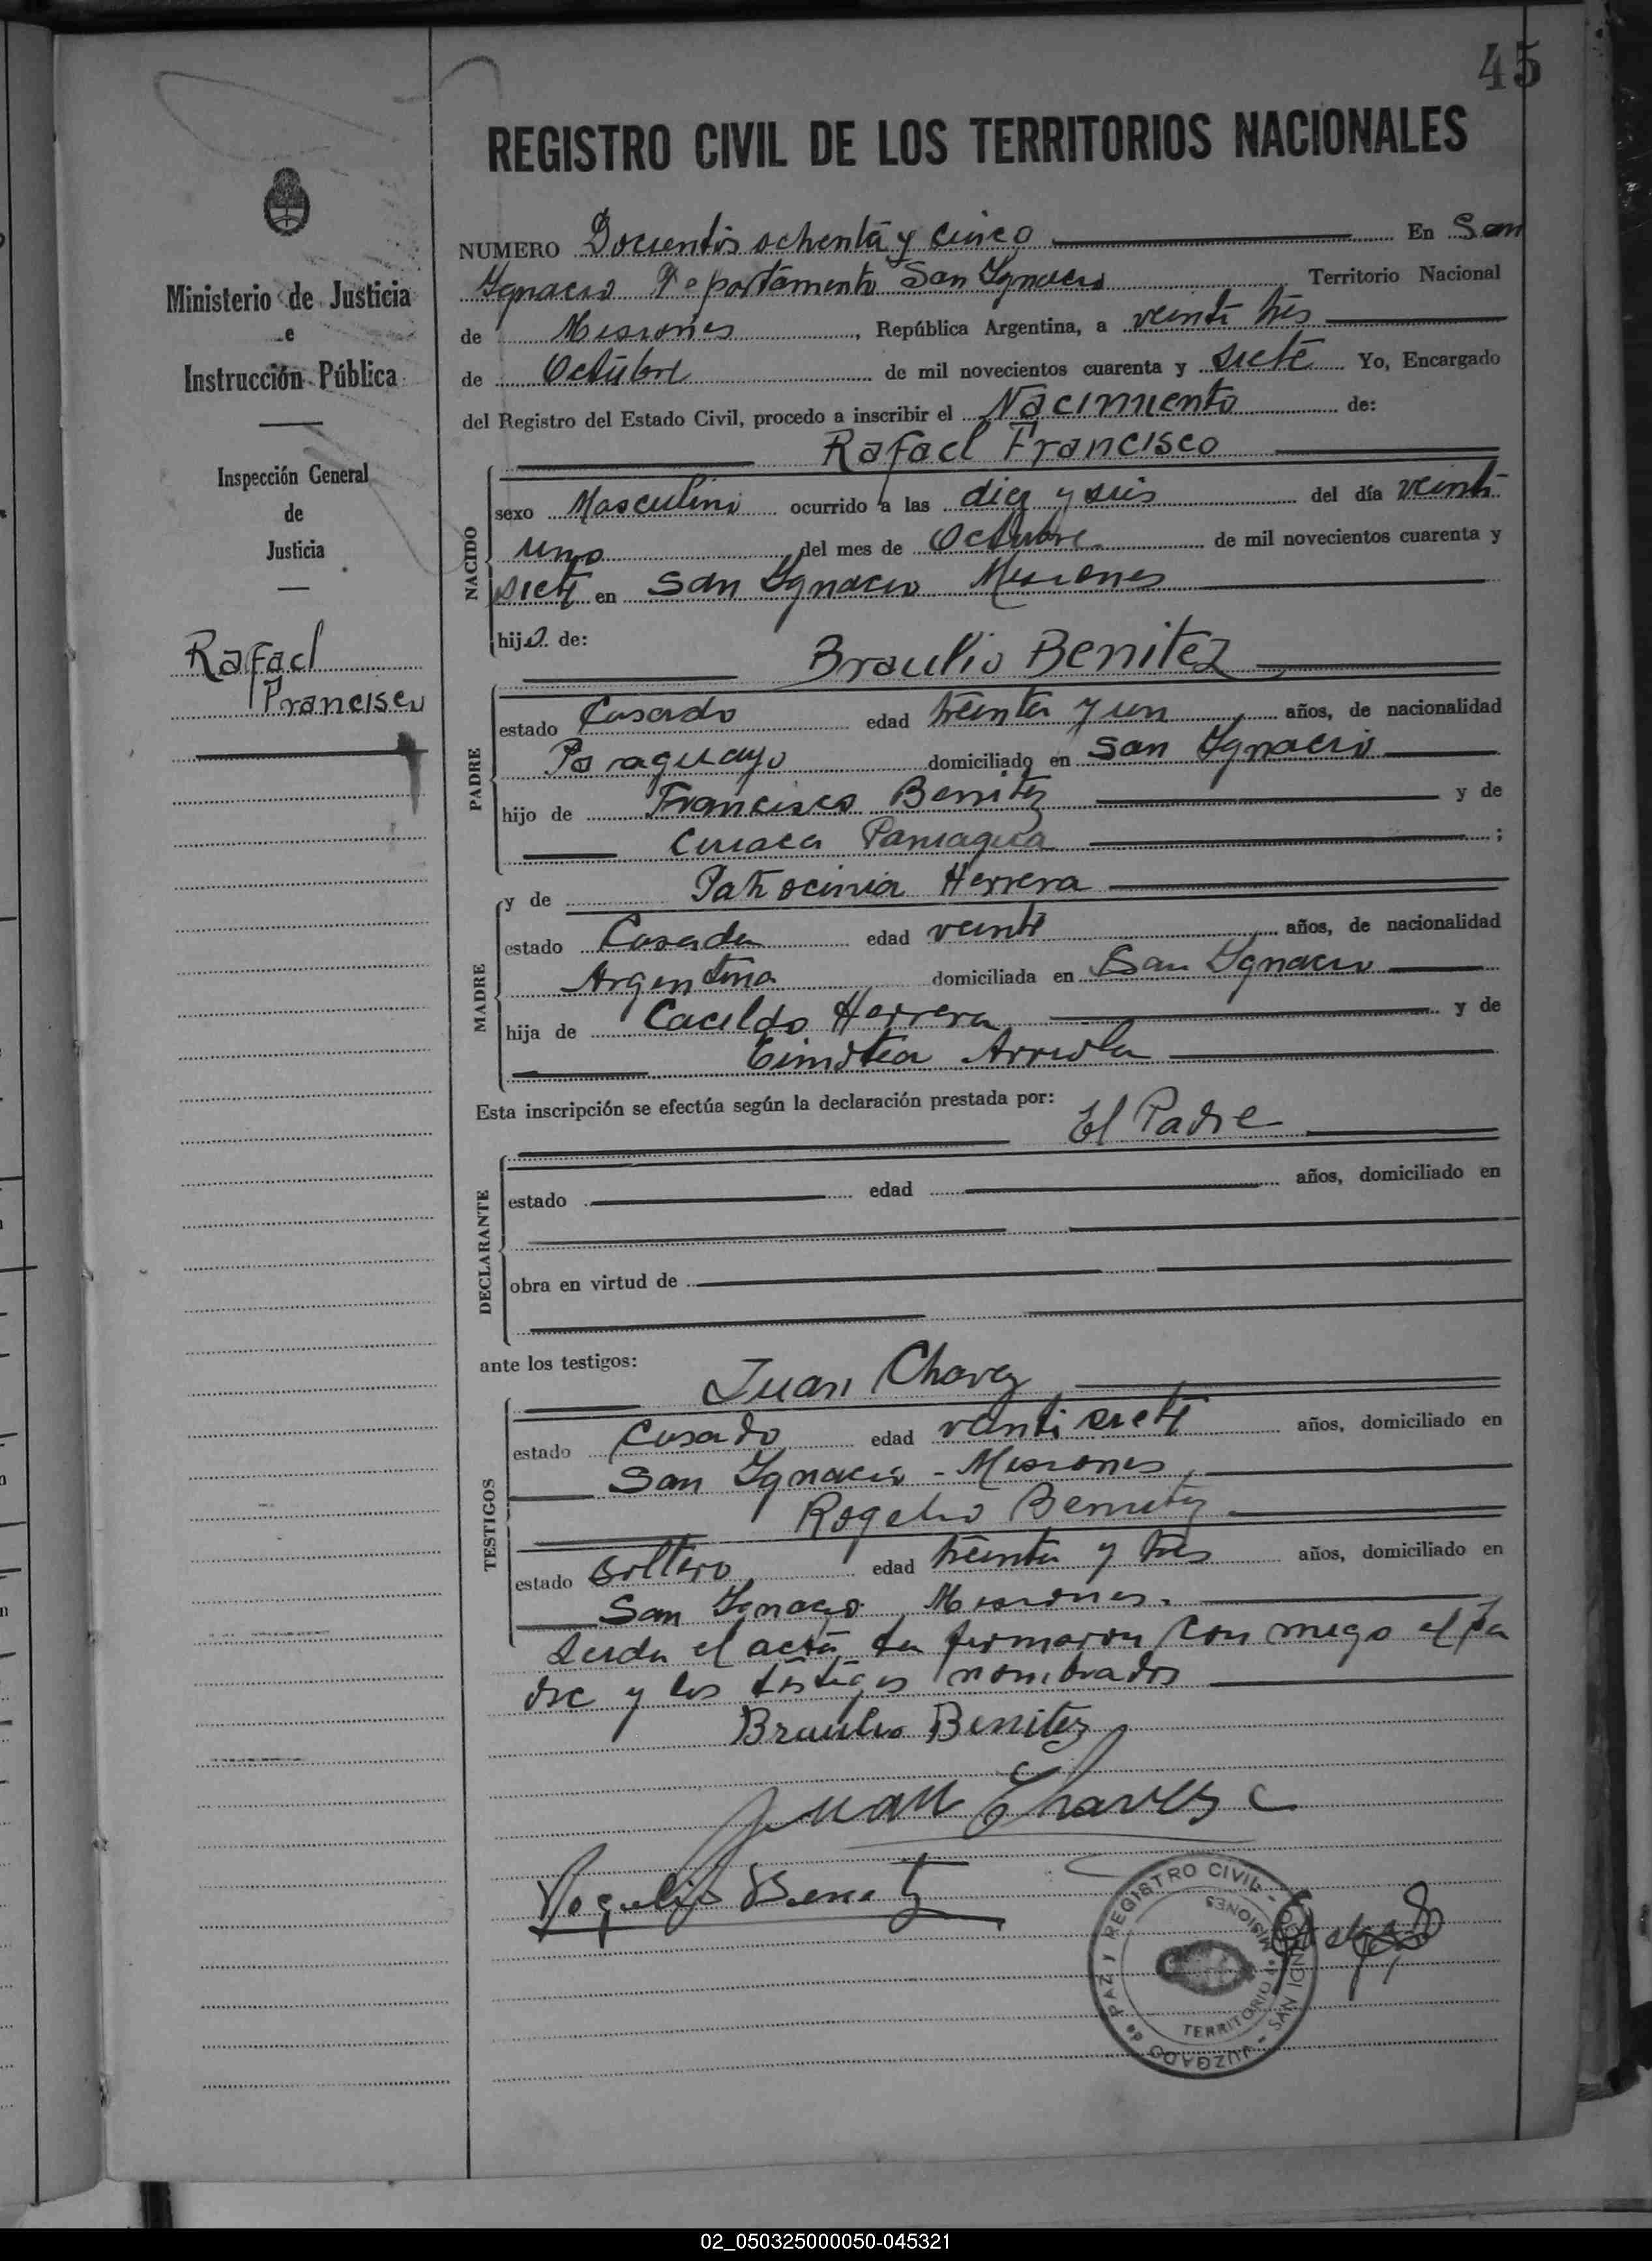 45
REGISTRO CIVIL DE LOS TERRITORIOS NACIONALES
Ministerio de Justicia
e
Instrucción Pública
Inspección General
de
Justicia
Rafael
Francisco
NUMERO Docientos ochenta y cinco En San
Ygnacio Departamento San Ygnacio Territorio Nacional
de Misiones, República Argentina, a veinti tres
de Octubre de mil novecientos cuarenta y siete Yo, Encargado
del Registro del Estado Civil, procedo a inscribir el Nacimiento de:
Rafael Francisco
NACIDO
sexo Masculino ocurrido a las diez y seis del día veinti
uno del mes de Octubre de mil novecientos cuarenta y
siete en San Ygnacio Misiones
hijo de:
Braulio Benitez
PADRE
estado Casado edad treinta y un años, de nacionalidad
Paraguayo domiciliado en San Ygnacio
hijo de Francisco Benitez y de
Ciriaca Paniagua ;
MADRE
y de Patrocinia Herrera
estado Casada edad veinte años, de nacionalidad
Argentina domiciliada en San Ygnacio
hija de Cacildo Herrera y de
Timotea Arriola
Esta inscripción se efectúa según la declaración prestada por:
El Padre
DECLARANTE
estado edad años, domiciliado en
obra en virtud de
ante los testigos:
Juan Chavez
TESTIGOS
estado Casado edad veinti siete años, domiciliado en
San Ygnacio - Misiones,
Rogelio Benitez
estado soltero edad treinta y tres años, domiciliado en
San Ygnacio Misiones.
Leida el acta la firmaron con migo el Pa
dre y los testigos nombrados
Braulio Benitez
Juan Chavez
Rogelio Benitez
JUZGADO de PAZ y REGISTRO CIVIL - SAN IGNACIO
TERRITORIO de MISIONES
02_050325000050-045321